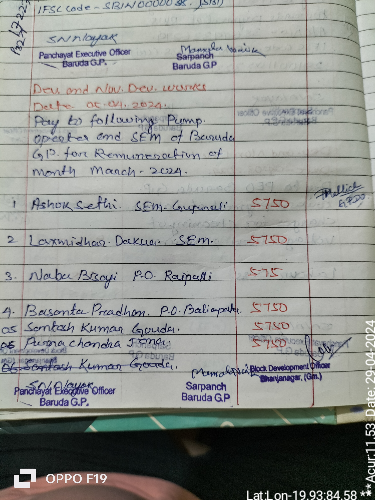 IFSC code - SBIN00000
SNNayak
Panchayat Executive Officer
Baruda G.P.
Sarpanch
Baruda G.P
Dev and Nov. Dev. works
Date 06.04.2024.
Pay to following Pump
operator and SEM of Baruda
G.P. for Remuneration of
month March - 2024.
1 Ashok Sethi. SEM- 5750
2 Laxmidhar Dakua. SEM. 5750
3. Naba Bisoyi P.O 575
4. Basanta Pradhan. P.O. 5750
05 Santosh Kumar Gouda. 5750
06 Purna chandra 5750
Santosh Kumar Gouda.
SNNayak
Panchayat Executive Officer
Baruda G.P.
Sarpanch
Baruda G.P
Block Development Officer
Bhanjanagar, (Gm.)
OPPO F19
Lat:Lon-19.93:84.58
**Acur:11.53 Date:29-04-2024